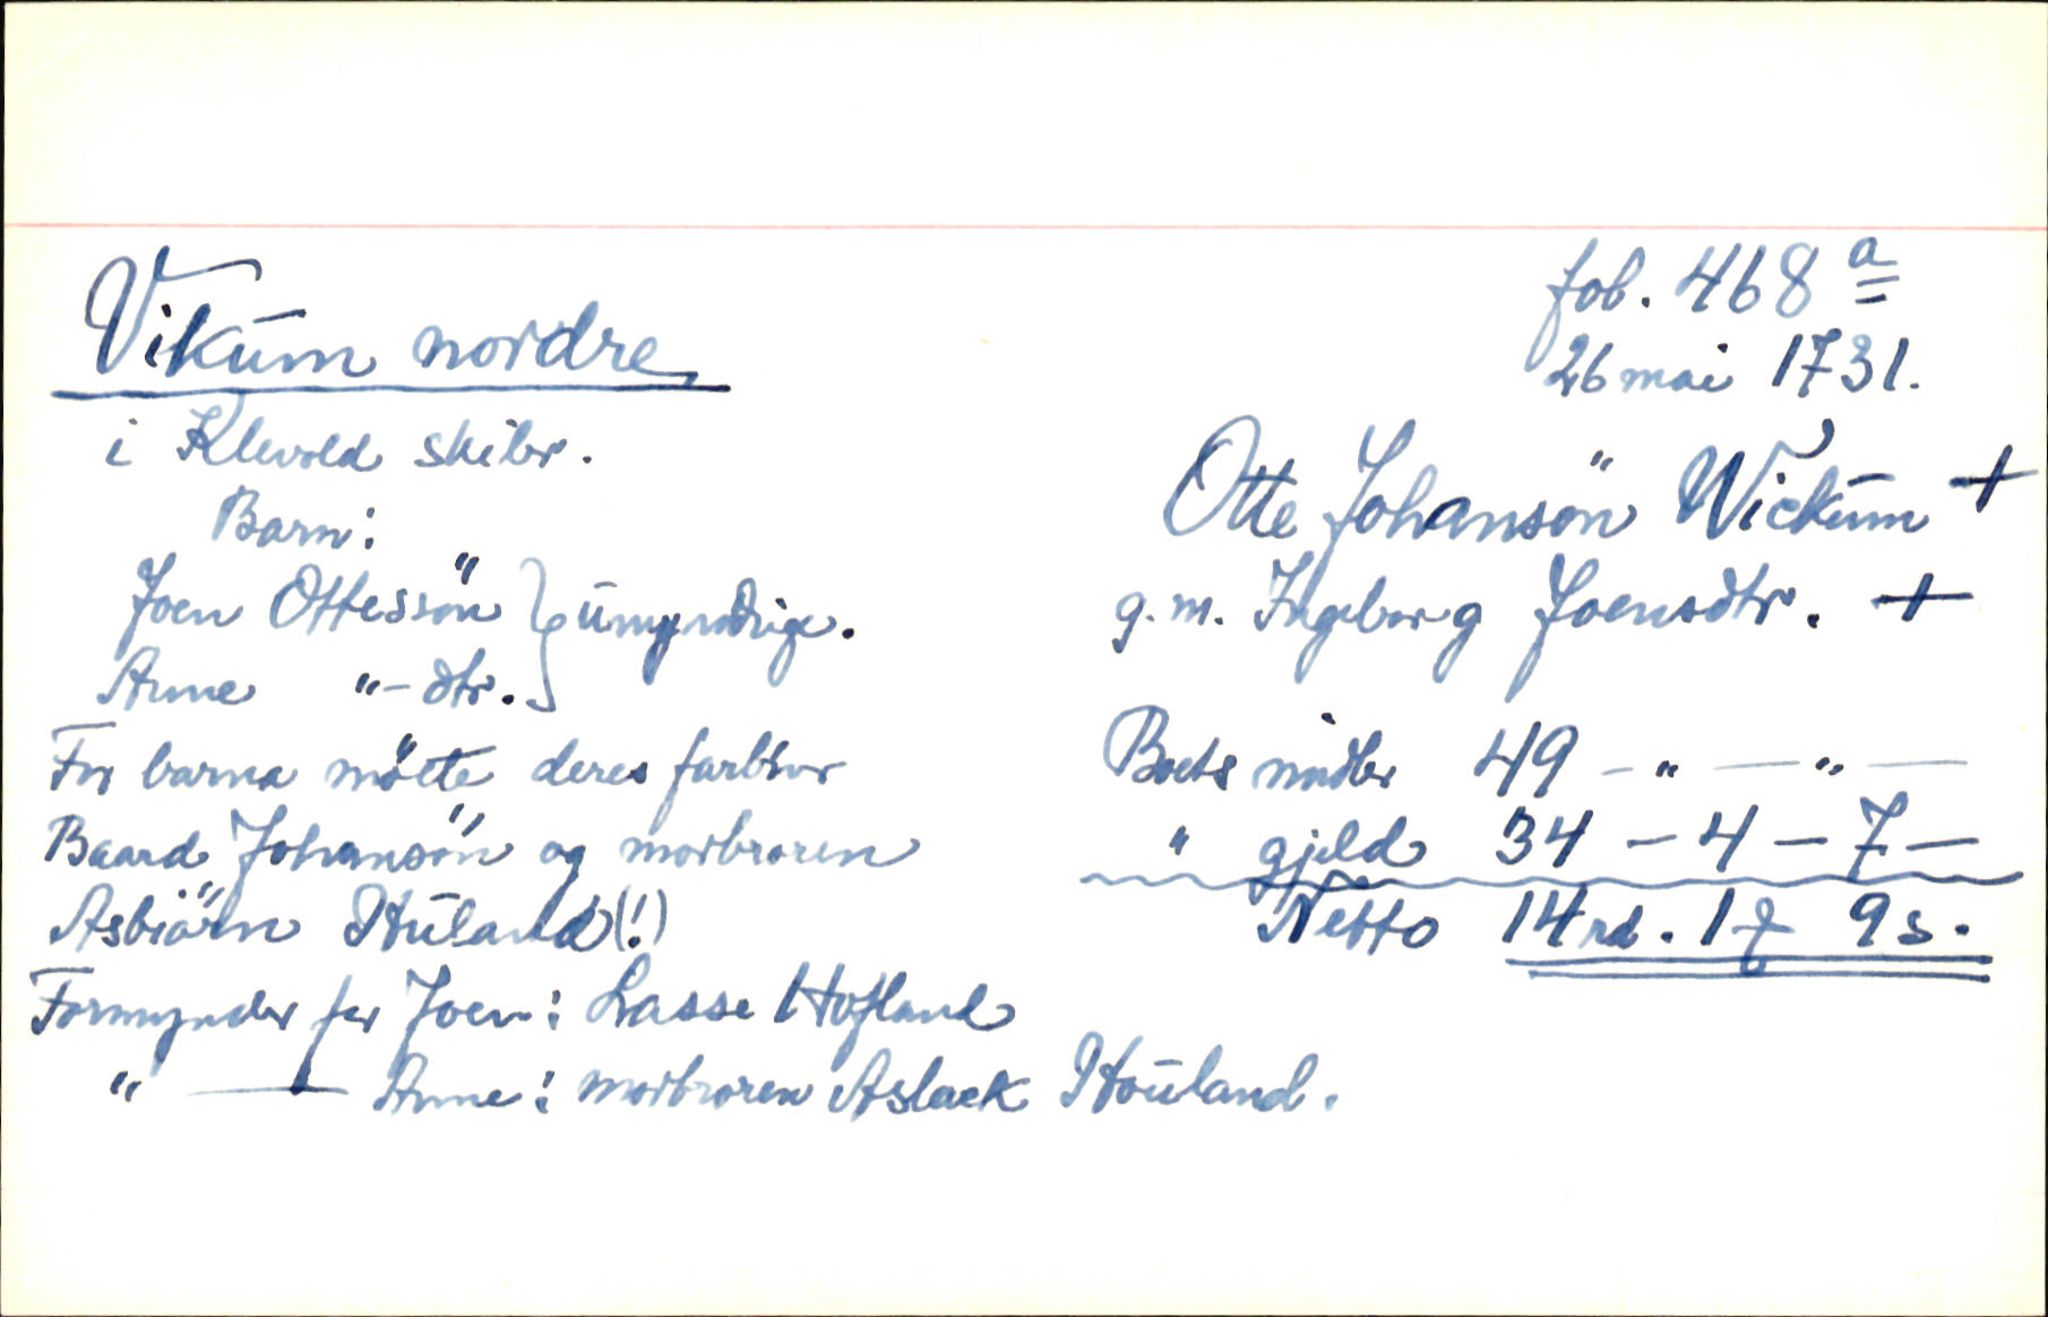 fol. 468 a
26 mai 1731.
Vikum nordre
i Klevold skibr.
Otte Johansön Wickum +
g. m. Ingeborg Joensdtr. +
Barn:
Joen Ottessön } umyndige.
Anne "- dtr.
For barna mötte deres farbror
Baard Johansön og morbroren
Asbiörn Huland (!)
Formynder for Joen: Lasse Hofland
" — Anne: morbroren Aslack Houland.
Boets midler 49 - " - " -
" gjeld 34 - 4 - 7 -
Netto 14 rd. 1 9 s.